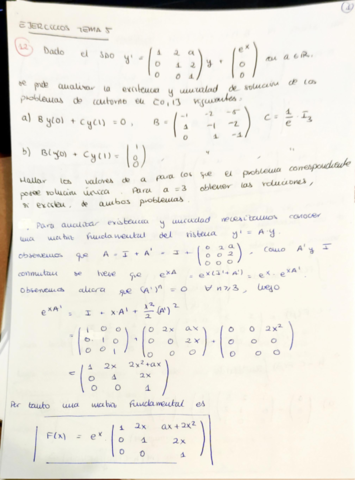 EJERCICIOS TEMA 5
Dado el SDO y' = (1 2 a; 0 1 2; 0 0 1) y + (e^x; 0; 0) en a ∈ ℝ.
se pide analizar la existencia y unicidad de solución de los
problemas de contorno en [0,1] siguientes.
a) By(0) + Cy(1) = 0, B = (-1 -2 -5; 1 -1 -2; 0 1 -1) C = 1/e I₃
b) By(0) + Cy(1) = (1; 1; 0) " "
Hallar los valores de a para los que el problema correspondiente
posee solución única. Para a = 3 obtener las soluciones,
si existen, de ambos problemas.
· Para analizar existencia y unicidad necesitamos conocer
una matriz fundamental del sistema y' = Ay
Observemos que A = I + A' = I + (0 2 a; 0 0 2; 0 0 0). Como A' y I
conmutan se tiene que e^xA = e^x(I+A') = e^x · e^xA'.
Observemos ahora que (A')^n = 0 ∀ n ≥ 3, luego
e^xA' = I + xA' + x²/2 (A')² =
= (1 0 0; 0 1 0; 0 0 1) + (0 2x ax; 0 0 2x; 0 0 0) + (0 0 2x²; 0 0 0; 0 0 0)
= (1 2x 2x²+ax; 0 1 2x; 0 0 1)
Por tanto una matriz fundamental es
F(x) = e^x (1 2x ax+2x²; 0 1 2x; 0 0 1)